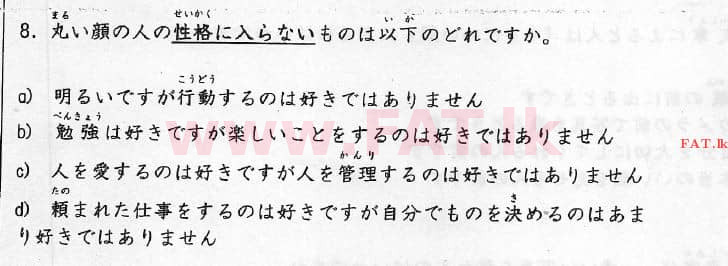 8. 丸い顔の人の性格に入らないものは以下のどれですか。
まる せいかく い か
a) 明るいですが行動するのは好きではありません
こうどう
b) 勉強は好きですが楽しいことをするのは好きではありません
べんきょう
c) 人を愛するのは好きですが人を管理するのは好きではありません
かんり
d) 頼まれた仕事をするのは好きですが自分でものを決めるのはあま
たの き
り好きではありません
www.FAT.lk
FAT.lk